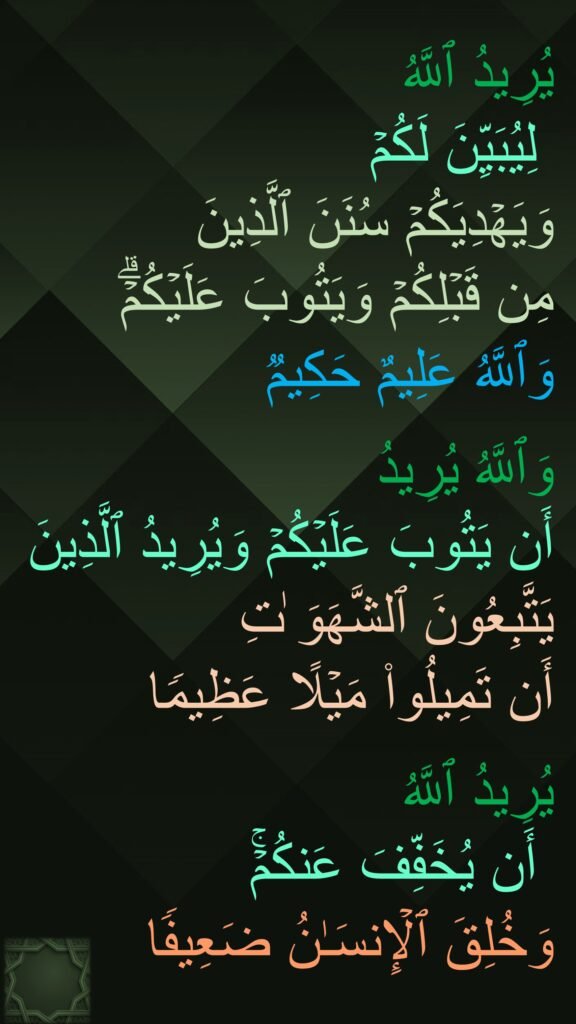 يُرِيدُ ٱللَّهُ
لِيُبَيِّنَ لَكُمۡ
وَيَهۡدِيَكُمۡ سُنَنَ ٱلَّذِينَ
مِن قَبۡلِكُمۡ وَيَتُوبَ عَلَيۡكُمۡۗ
وَٱللَّهُ عَلِيمٌ حَكِيمٌ
وَٱللَّهُ يُرِيدُ
أَن يَتُوبَ عَلَيۡكُمۡ وَيُرِيدُ ٱلَّذِينَ
يَتَّبِعُونَ ٱلشَّهَوَ ٰتِ
أَن تَمِيلُواْ مَيۡلًا عَظِيمٗا
يُرِيدُ ٱللَّهُ
أَن يُخَفِّفَ عَنكُمۡۚ
وَخُلِقَ ٱلۡإِنسَـٰنُ ضَعِيفٗا